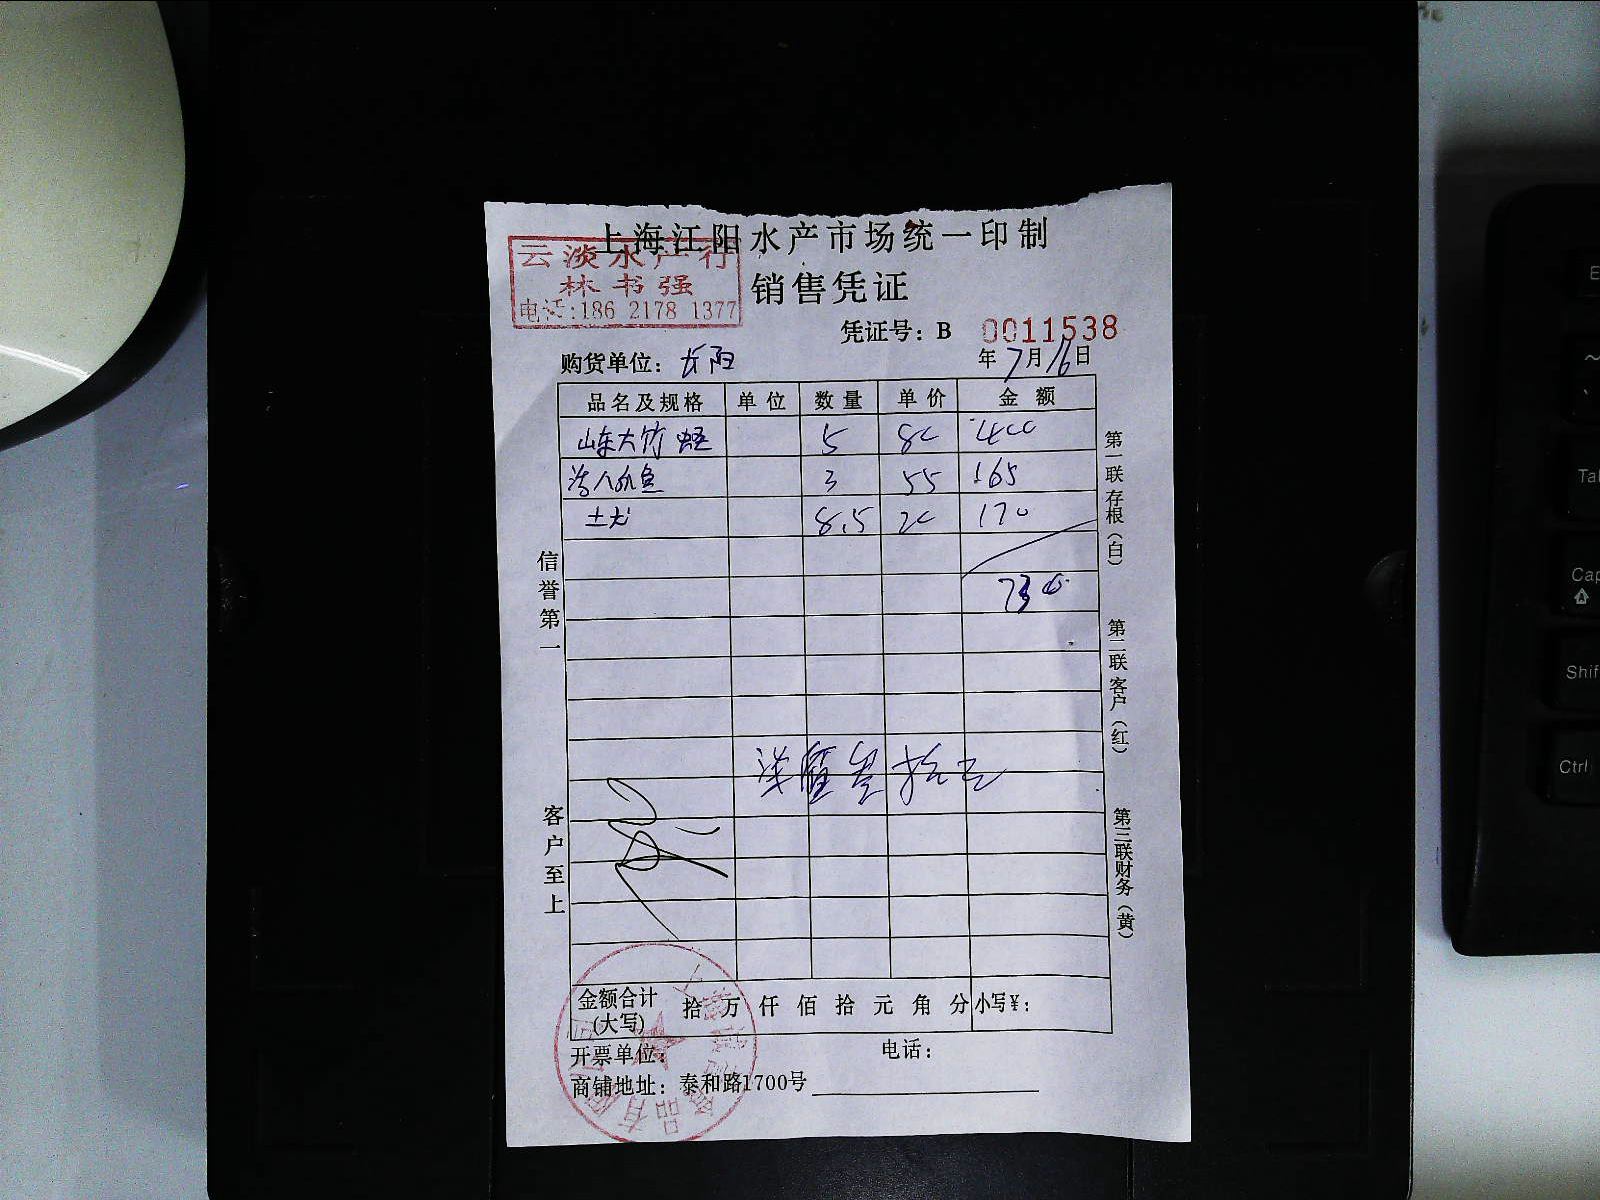 上海江阳水产市场统一印制
云淡水产行
林书强
电话:186 2178 1377
销售凭证
凭证号: B 0011538
购货单位: 长阳 年 7 月 16 日
品名及规格 单位 数量 单价 金额
山东大竹蛏 5 80 400
3 55 165
8.5 20 170
信誉第一
客户至上
第一联存根(白)
第二联客户(红)
第三联财务(黄)
金额合计(大写) 拾 万 仟 佰 拾 元 角 分 小写¥:
开票单位: 电话:
商铺地址: 泰和路1700号
E
Tab
Cap
Shif
Ctrl